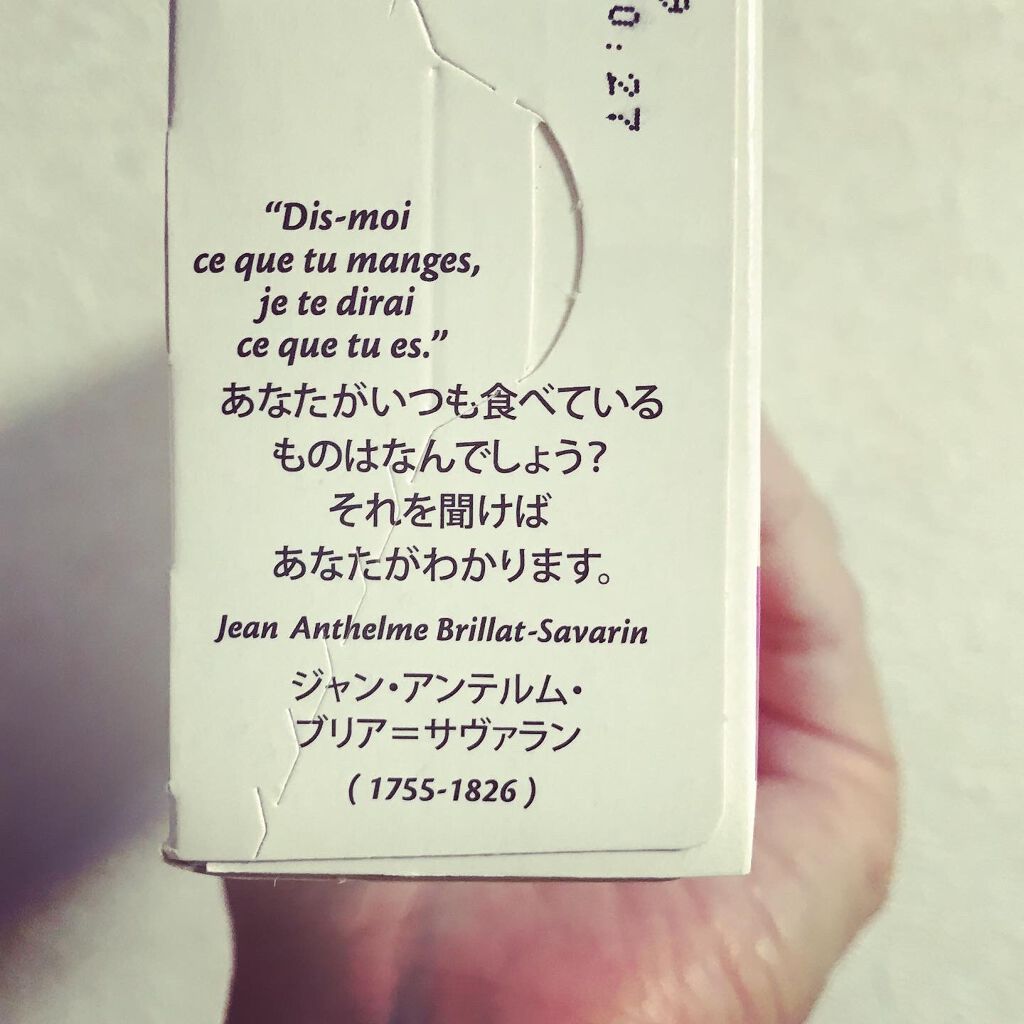 “Dis-moi
ce que tu manges,
je te dirai
ce que tu es.”
あなたがいつも食べている
ものはなんでしょう？
それを聞けば
あなたがわかります。
Jean Anthelme Brillat-Savarin
ジャン・アンテルム・
ブリア＝サヴァラン
( 1755-1826 )
0:27